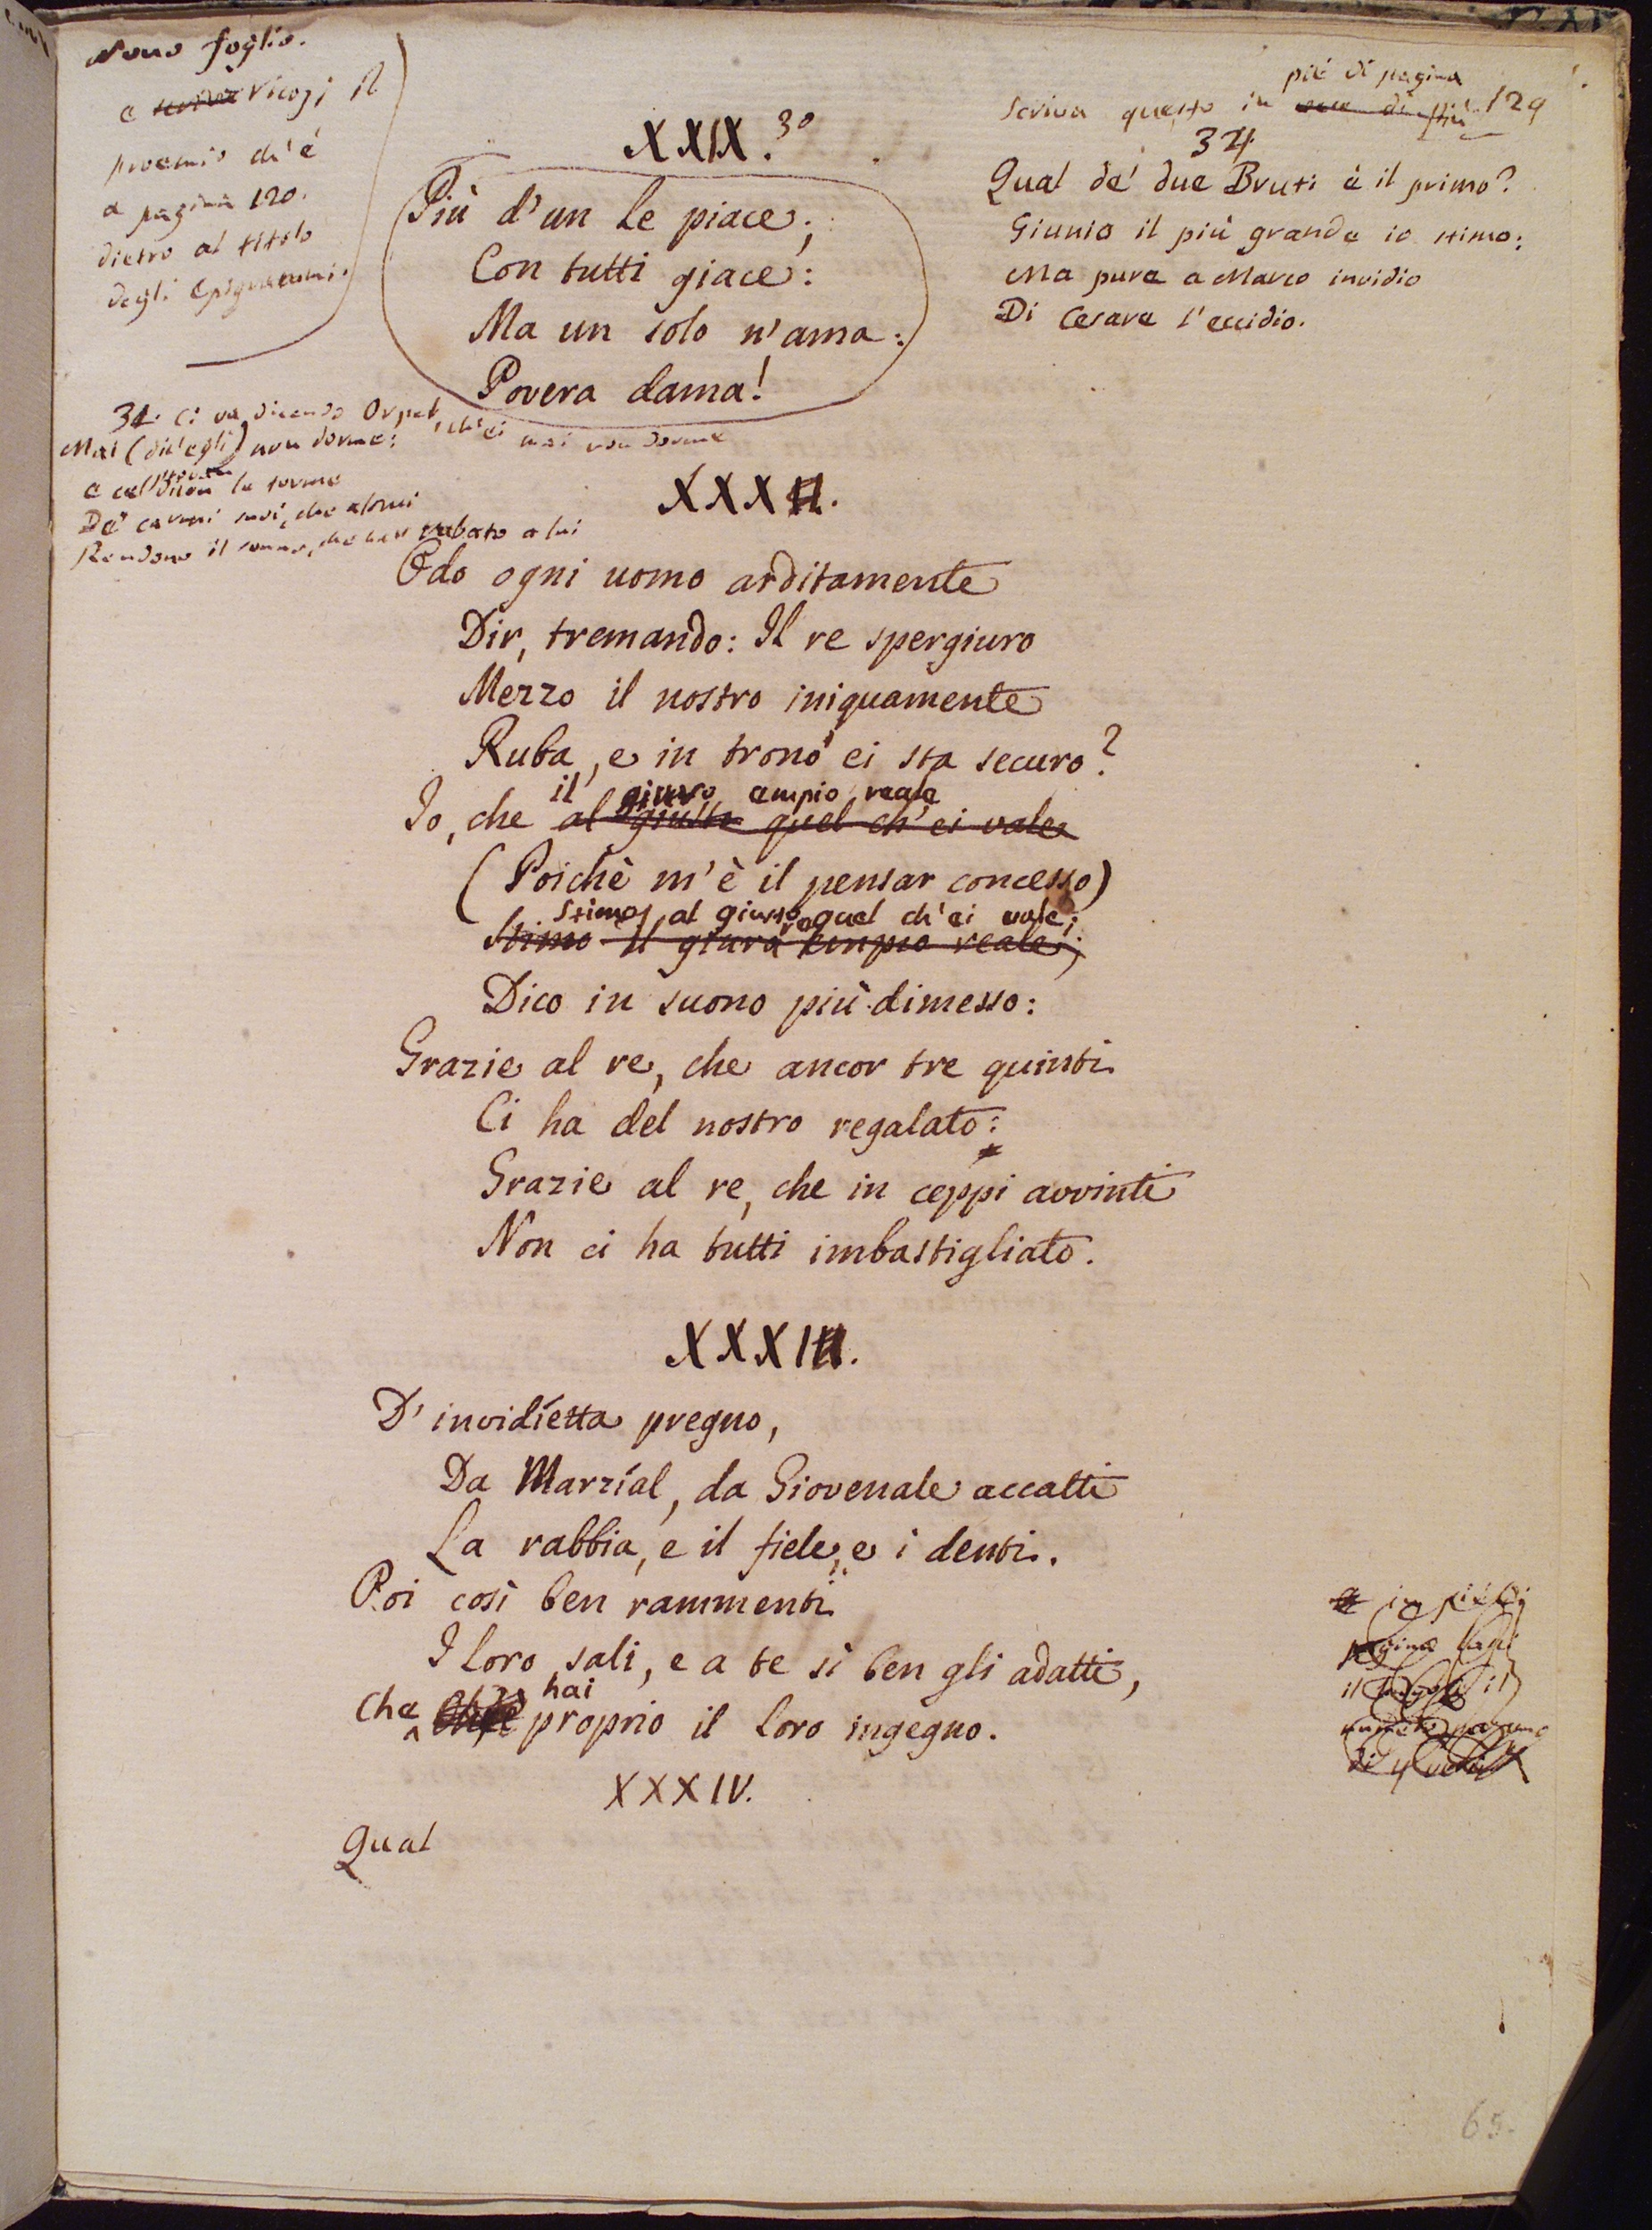 Nono foglio.
e scrive Vicopj il
proemio ch'è
a pagina 120.
dietro al titolo
degli Epigrammi.
piè di pagina
Scriva questo in 129
34
Qual de' due Bruti è il primo?
Giunio il più grande io stimo:
Ma pure a Marco invidio
Di Cesare l'eccidio.
XXIX. 30
Più d'un le piace;
Con tutti giace:
Ma un solo n'ama:
Povera dama!
31. Ci va dicendo Orpel, ch'ei mai non dorme
Mai (dic'egli) non dorme:
e cel dicon le torme
De' carmi suoi, che altrui
Rendono il sonno, che han rubato a lui
XXXII.
Odo ogni uomo arditamente
Dir, tremando: Il re spergiuro
Mezzo il nostro iniquamente
Ruba, e in trono ei sta securo?
il giuro empio reale
Io, che al giusto quel ch'ei vale
(Poichè m'è il pensar concesso)
Stimo al giusto quel ch'ei vale;
Stimo il giuro empio reale;
Dico in suono più dimesso:
Grazie al re, che ancor tre quinti
Ci ha del nostro regalato:
Grazie al re, che in ceppi avvinti
Non ci ha tutti imbastigliato.
XXXIII.
D'invidietta pregno,
Da Marzial, da Giovenale accatti
La rabbia, e il fiele, e i denti.
Poi così ben rammenti
I loro sali, e a te sì ben gli adatti,
hai
Che proprio il loro ingegno.
in piè di
pagina
il
di 4 versi
XXXIV.
Qual
65.